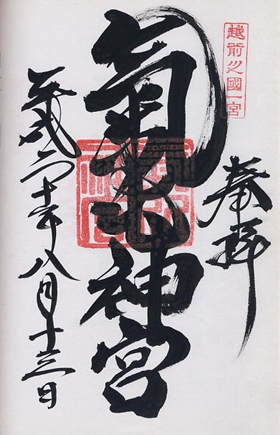 越前之國一宮
奉拝
氣比神宮
平成二十年八月十三日